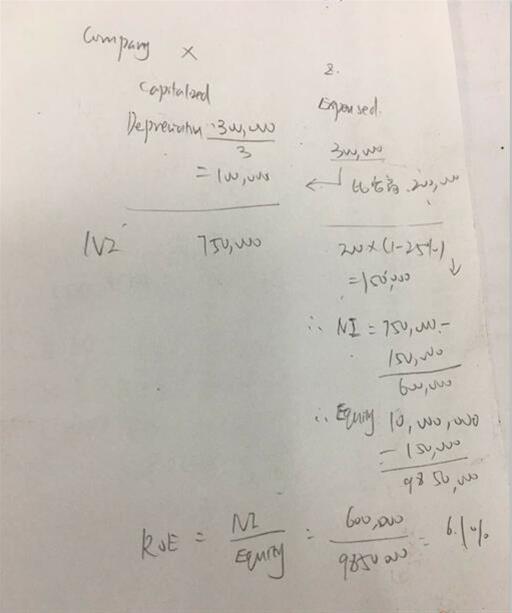 Company X
2.
Capitalized
Expensed.
Depreciation 300,000
3
300,000
= 100,000
比它高 200,000
NI
750,000
200 × (1-25%)
= 150,000
∴ NI = 750,000 -
150,000
600,000
∴ Equity 10,000,000
- 150,000
9850,000
ROE = NI / Equity = 600,000 / 9850 000 = 6.1%